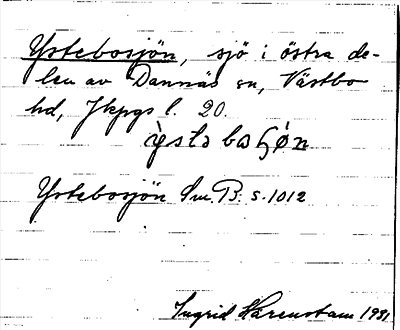 Ystebosjön, sjö i östra de-
len av Dannäs sn, Västbo
hd, Jkpgs l. 20.
Ystebosjön Sm. B: s. 1012
Ingrid Harenstam 1931